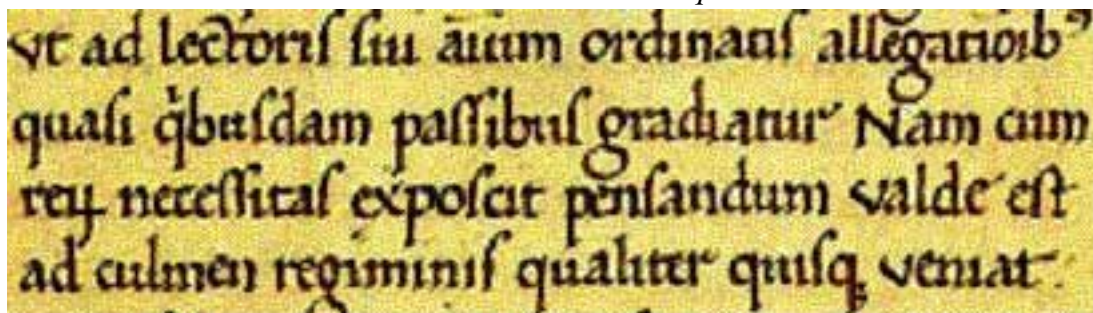 vt ad lectoriſ ſui aīum ordinatiſ allegatiōib⁹
quaſi qͥbuſdam paſſibuſ gradiatur Nam cum
reꝝ neceſſitaſ expoſcit penſandum valde eſt
ad culmen regiminiſ qualiter quiſqꝫ veniat.